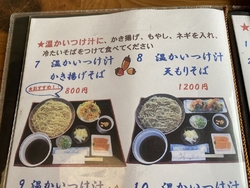 ★温かいつけ汁に、かき揚げ、もやし、ネギを入れ、
冷たいそばをつけて食べてください
7 温かいつけ汁
かき揚げそば
800円
8 温かいつけ汁
天もりそば
1200円
9 温かいつけ汁
10 温かいつけ汁